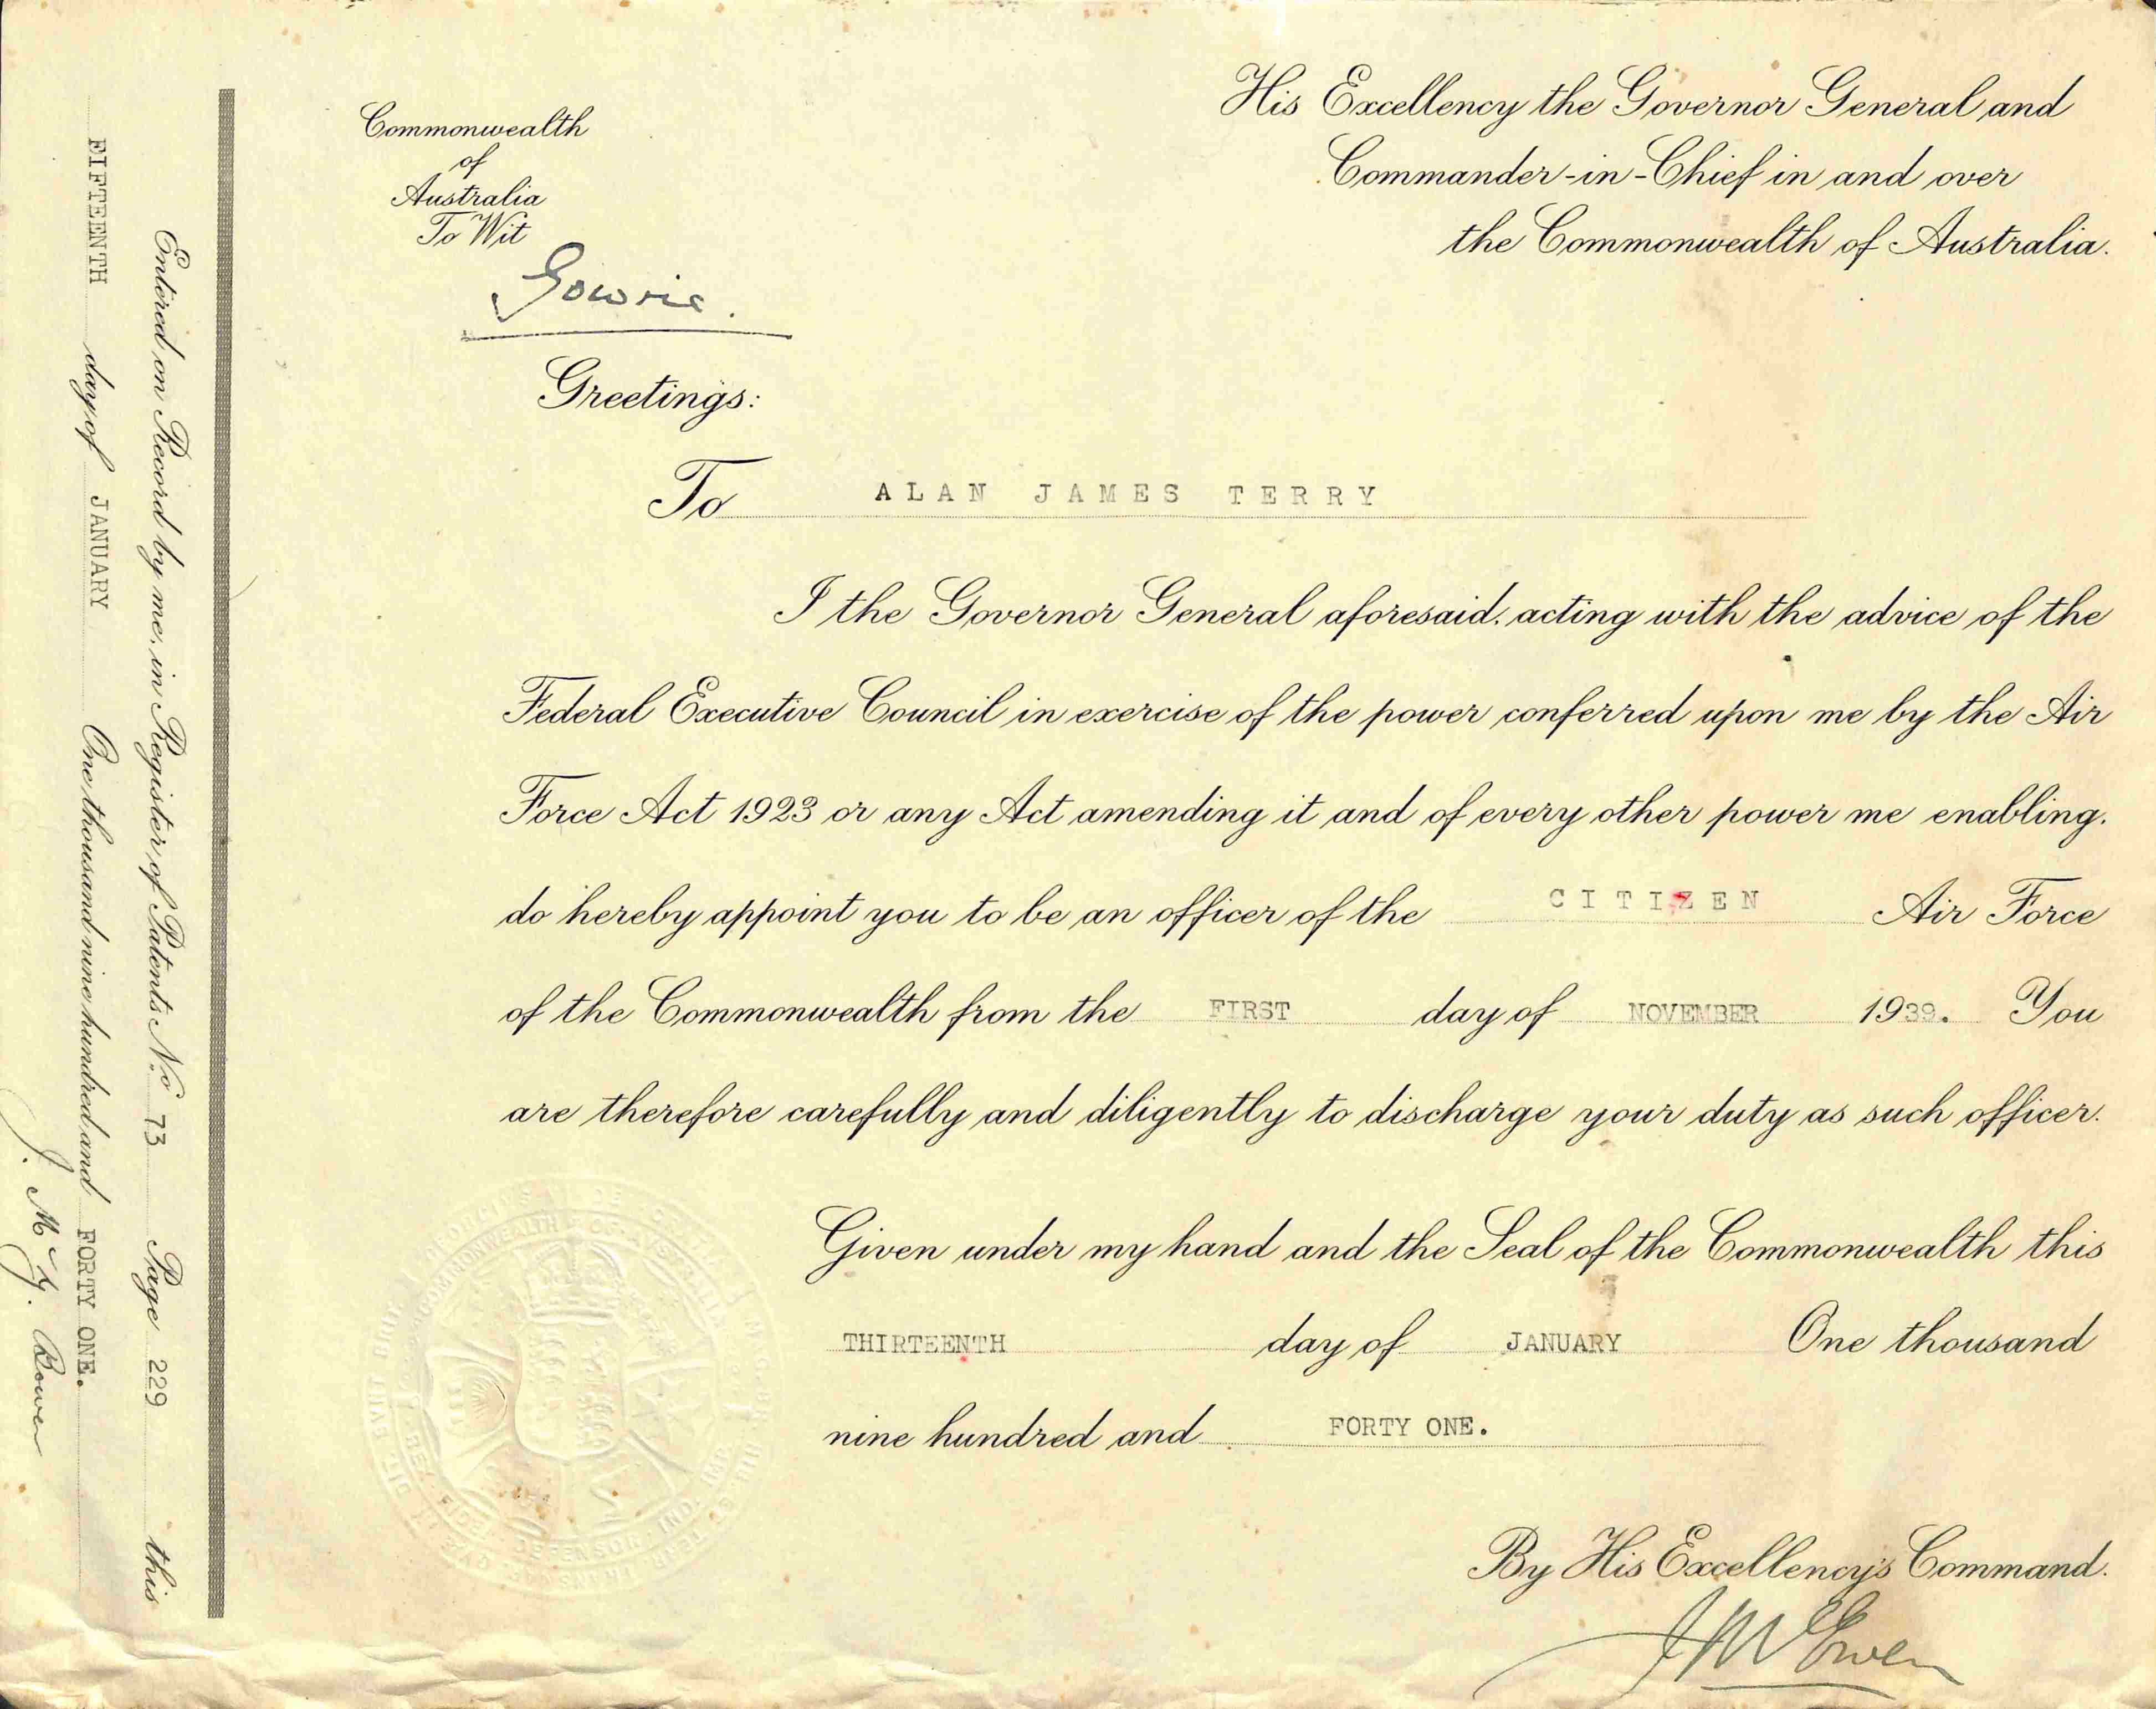 Commonwealth
of
Australia
To Wit
Gowrie.
His Excellency the Governor General and
Commander-in-Chief in and over
the Commonwealth of Australia.
Greetings:
To ALAN JAMES TERRY
I the Governor General aforesaid, acting with the advice of the
Federal Executive Council in exercise of the power conferred upon me by the Air
Force Act 1923 or any Act amending it and of every other power me enabling,
do hereby appoint you to be an officer of the CITIZEN Air Force
of the Commonwealth from the FIRST day of NOVEMBER 1939. You
are therefore carefully and diligently to discharge your duty as such officer.
Given under my hand and the Seal of the Commonwealth this
THIRTEENTH day of JANUARY One thousand
nine hundred and FORTY ONE.
By His Excellency's Command.
J McEwen
Entered on Record by me, in Register of Patents No 73 Page 229 this
FIFTEENTH day of JANUARY One thousand nine hundred and FORTY ONE.
COMMONWEALTH OF
REX FIDEI DEFENSOR IND. IMP.